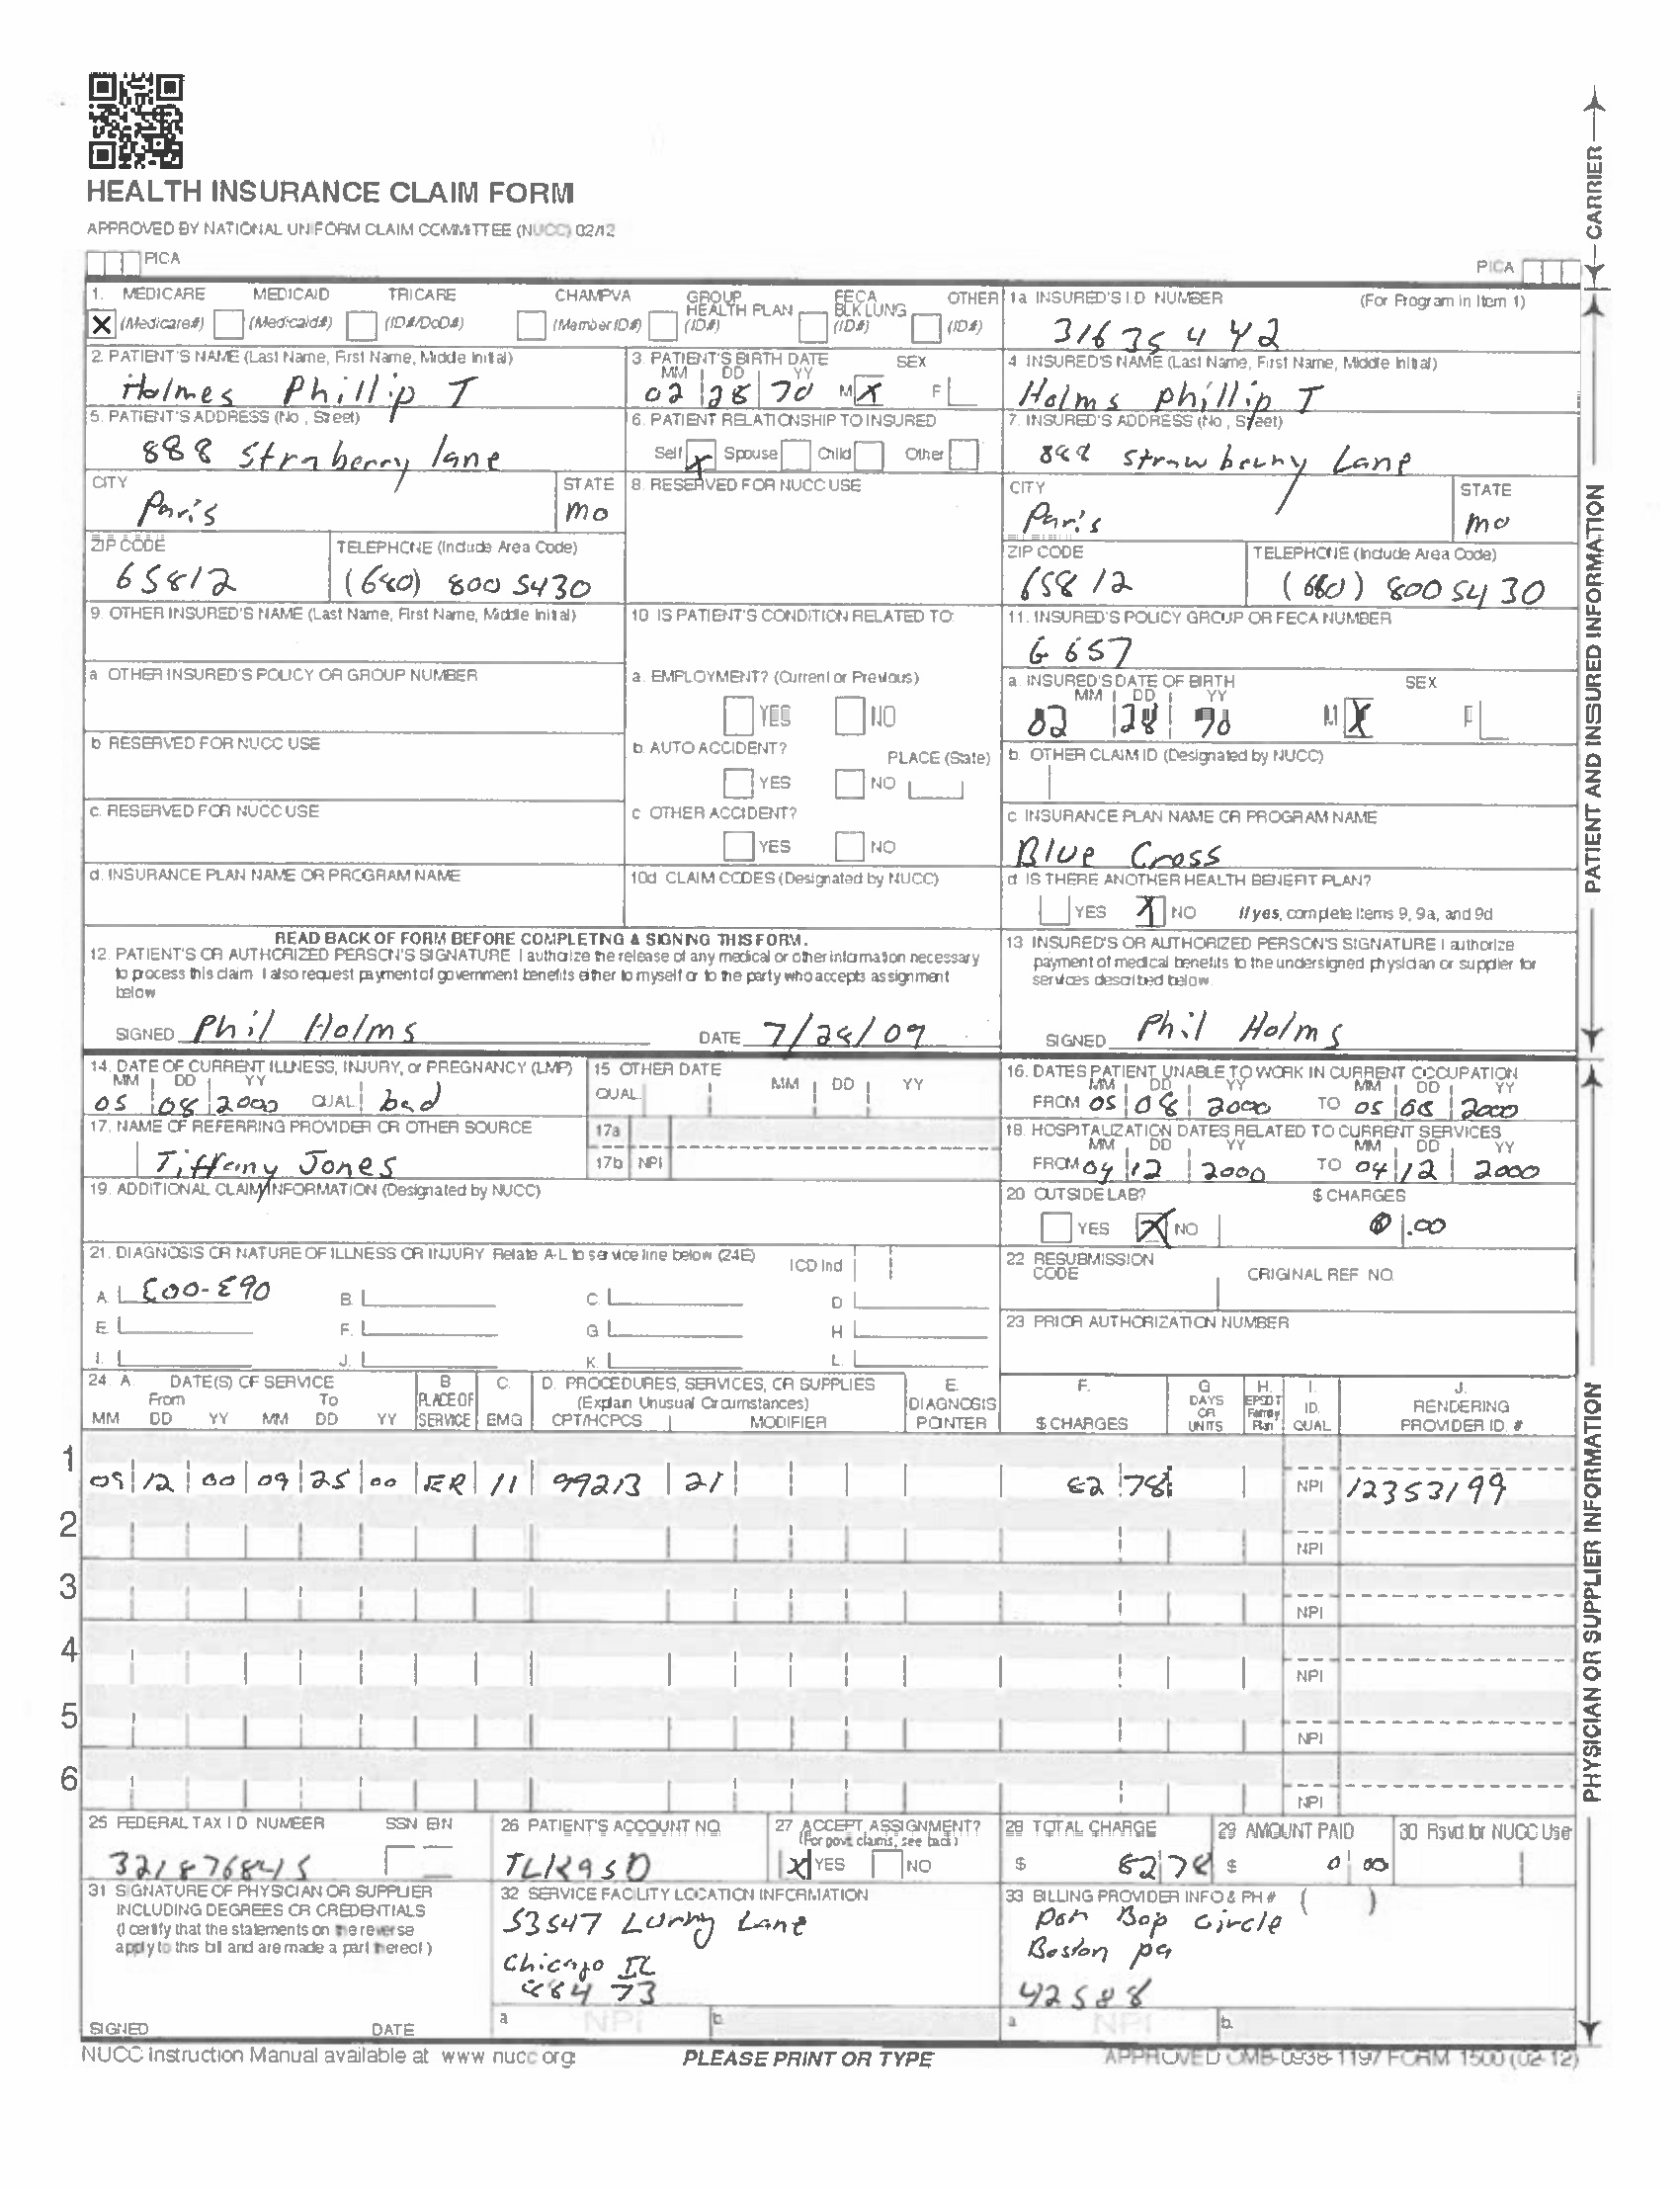 HEALTH INSURANCE CLAIM FORM
APPROVED BY NATIONAL UNIFORM CLAIM COMMITTEE (NUCC) 02/12
PICA
PICA
CARRIER
1. MEDICARE MEDICAID TRICARE CHAMPVA GROUP HEALTH PLAN FECA BLK LUNG OTHER
X (Medicare#) (Medicaid#) (ID#/DoD#) (Member ID#) (ID#) (ID#) (ID#)
1a INSURED'S I.D NUMBER (For Program in Item 1)
31635442
2. PATIENT'S NAME (Last Name, First Name, Middle Initial)
Holmes Phillip T
3 PATIENT'S BIRTH DATE SEX
MM DD YY
02 28 70 M X F
4 INSURED'S NAME (Last Name, First Name, Middle Initial)
Holms Phillip T
5. PATIENT'S ADDRESS (No, Street)
888 Straberry lane
6. PATIENT RELATIONSHIP TO INSURED
Self X Spouse Child Other
7. INSURED'S ADDRESS (No, Street)
888 Strawberry Lane
CITY STATE
Paris mo
8. RESERVED FOR NUCC USE
CITY STATE
Paris mo
ZIP CODE TELEPHONE (Include Area Code)
65812 (680) 800 5430
ZIP CODE TELEPHONE (Include Area Code)
65812 (660) 800 5430
9. OTHER INSURED'S NAME (Last Name, First Name, Middle Initial)
10 IS PATIENT'S CONDITION RELATED TO:
11. INSURED'S POLICY GROUP OR FECA NUMBER
G 657
a OTHER INSURED'S POLICY OR GROUP NUMBER
a. EMPLOYMENT? (Current or Previous)
YES NO
a. INSURED'S DATE OF BIRTH SEX
MM DD YY
02 28 70 M X F
b RESERVED FOR NUCC USE
b. AUTO ACCIDENT? PLACE (State)
YES NO
b. OTHER CLAIM ID (Designated by NUCC)
c. RESERVED FOR NUCC USE
c OTHER ACCIDENT?
YES NO
c INSURANCE PLAN NAME OR PROGRAM NAME
Blue Cross
d. INSURANCE PLAN NAME OR PROGRAM NAME
10d CLAIM CODES (Designated by NUCC)
d IS THERE ANOTHER HEALTH BENEFIT PLAN?
YES X NO If yes, complete items 9, 9a, and 9d
READ BACK OF FORM BEFORE COMPLETING & SIGNING THIS FORM.
12. PATIENT'S OR AUTHORIZED PERSON'S SIGNATURE I authorize the release of any medical or other information necessary
to process this claim I also request payment of government benefits either to myself or to the party who accepts assignment
below
SIGNED Phil Holms DATE 7/28/09
13 INSURED'S OR AUTHORIZED PERSON'S SIGNATURE I authorize
payment of medical benefits to the undersigned physician or supplier for
services described below.
SIGNED Phil Holms
PATIENT AND INSURED INFORMATION
14. DATE OF CURRENT ILLNESS, INJURY, or PREGNANCY (LMP)
MM DD YY
05 08 2000 QUAL bad
15 OTHER DATE
QUAL MM DD YY
16. DATES PATIENT UNABLE TO WORK IN CURRENT OCCUPATION
MM DD YY MM DD YY
FROM 05 08 2000 TO 05 08 2000
17. NAME OF REFERRING PROVIDER OR OTHER SOURCE
Tiffany Jones
17a
17b NPI
18. HOSPITALIZATION DATES RELATED TO CURRENT SERVICES
MM DD YY MM DD YY
FROM 04 12 2000 TO 04 12 2000
19. ADDITIONAL CLAIM INFORMATION (Designated by NUCC)
20 OUTSIDE LAB? $ CHARGES
YES X NO 0 .00
21. DIAGNOSIS OR NATURE OF ILLNESS OR INJURY Relate A-L to service line below (24E) ICD Ind
A. E00-E90 B. C. D
E. F. G H
I. J. K. L.
22 RESUBMISSION CODE ORIGINAL REF NO.
23 PRIOR AUTHORIZATION NUMBER
24. A. DATE(S) OF SERVICE B C. D. PROCEDURES, SERVICES, OR SUPPLIES E. F. G H. I. J.
From To PLACE OF (Explain Unusual Circumstances) DIAGNOSIS DAYS OR EPSDT Family ID. RENDERING
MM DD YY MM DD YY SERVICE EMG CPT/HCPCS MODIFIER POINTER $ CHARGES UNITS Plan QUAL PROVIDER ID. #
1 09 12 00 09 25 00 ER 11 99213 21 62 78 NPI 12353199
2 NPI
3 NPI
4 NPI
5 NPI
6 NPI
25 FEDERAL TAX I D NUMBER SSN EIN
321876845
26 PATIENT'S ACCOUNT NO.
TLK950
27 ACCEPT ASSIGNMENT?
(For govt claims, see back)
X YES NO
28 TOTAL CHARGE
$ 62 78
29 AMOUNT PAID
$ 0 00
30 Rsvd for NUCC Use
31 SIGNATURE OF PHYSICIAN OR SUPPLIER
INCLUDING DEGREES OR CREDENTIALS
(I certify that the statements on the reverse
apply to this bill and are made a part thereof)
SIGNED DATE
32 SERVICE FACILITY LOCATION INFORMATION
53547 Lane
Chicago IL
48473
a NPI b.
33 BILLING PROVIDER INFO & PH # ( )
Bop Circle
Boston pa
42588
a NPI b.
PHYSICIAN OR SUPPLIER INFORMATION
NUCC Instruction Manual available at www nucc org
PLEASE PRINT OR TYPE
APPROVED OMB-0938-1197 FORM 1500 (02-12)